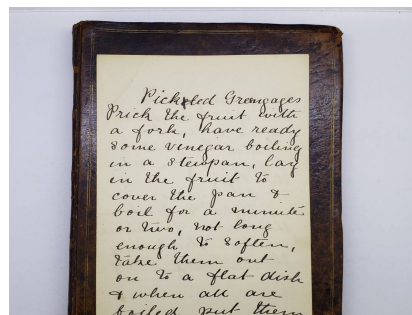 Pickled Greengages
Prick the fruit with
a fork, have ready
some vinegar boiling
in a stewpan, lay
in the fruit to
cover the pan &
boil for a minute
or two, not long
enough to soften,
take them out
on to a flat dish
& when all are
boiled put them